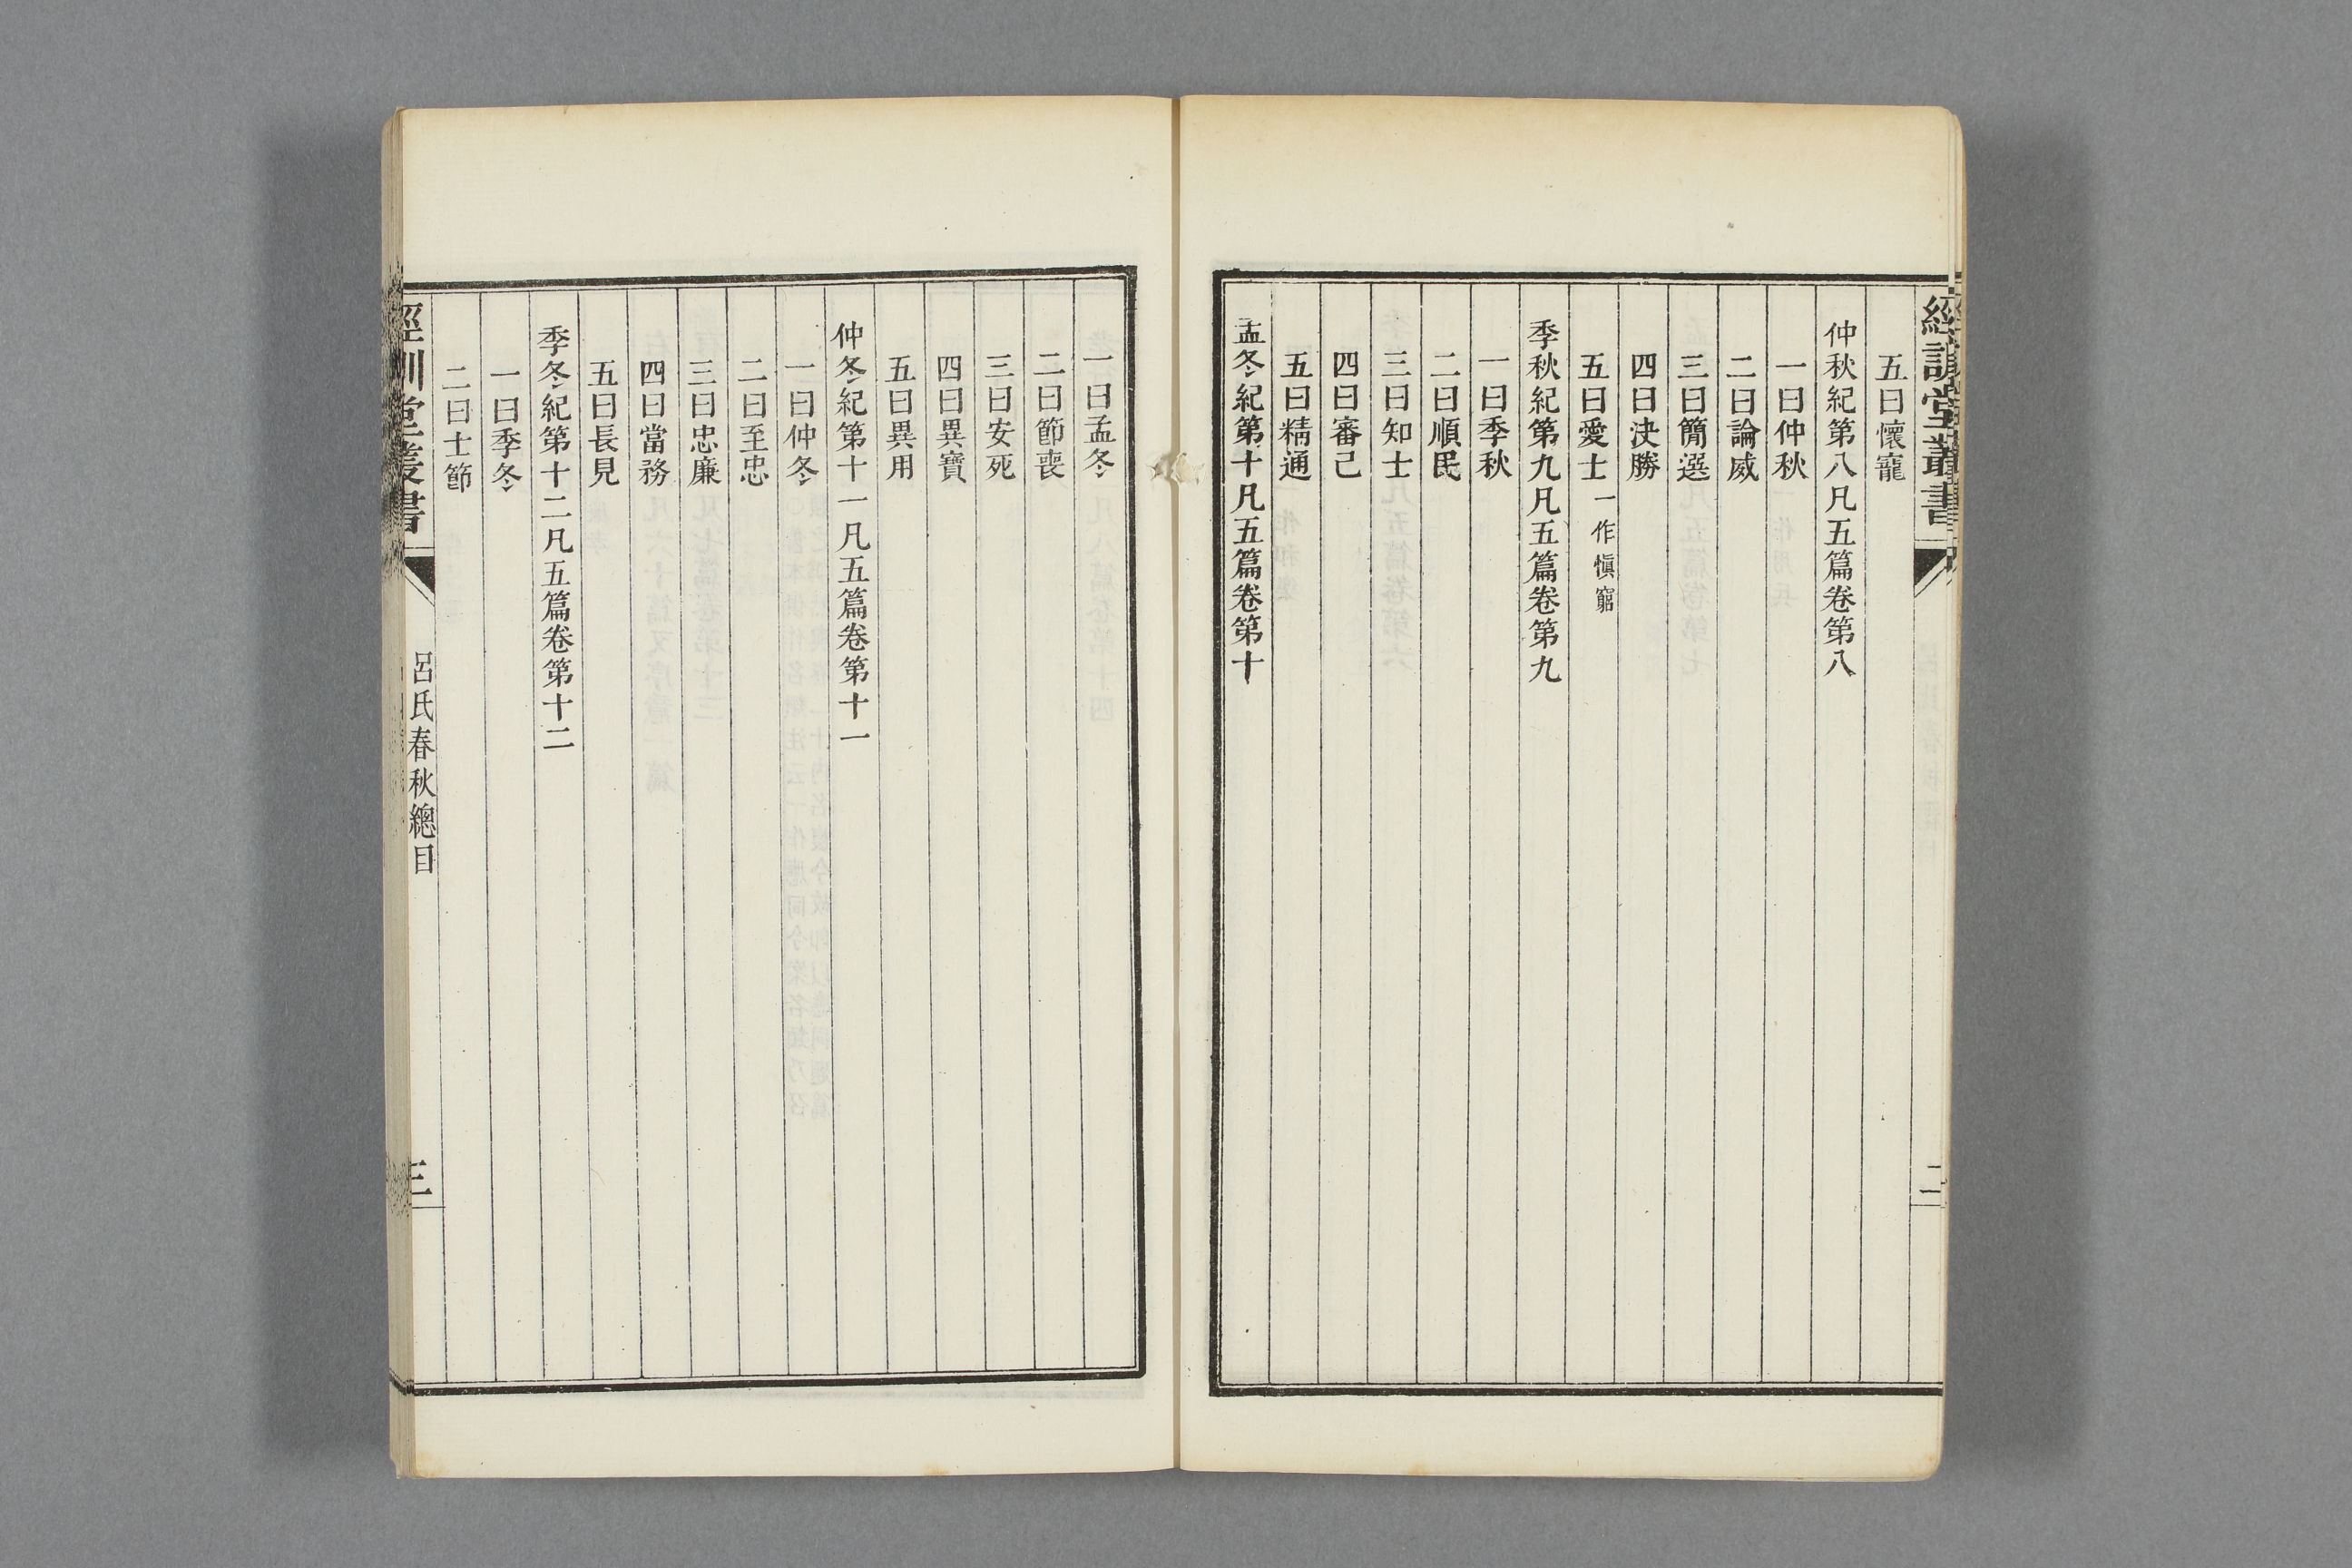 經訓堂叢書
二
五曰懷寵
仲秋紀第八凡五篇卷第八
一曰仲秋
二曰論威
三曰簡選
四曰決勝
五曰愛士一作慎窮
季秋紀第九凡五篇卷第九
一曰季秋
二曰順民
三曰知士
四曰審己
五曰精通
孟冬紀第十凡五篇卷第十
一曰孟冬
二曰節喪
三曰安死
四曰異寶
五曰異用
仲冬紀第十一凡五篇卷第十一
一曰仲冬
二曰至忠
三曰忠廉
四曰當務
五曰長見
季冬紀第十二凡五篇卷第十二
一曰季冬
二曰士節
經訓堂叢書
呂氏春秋總目
三